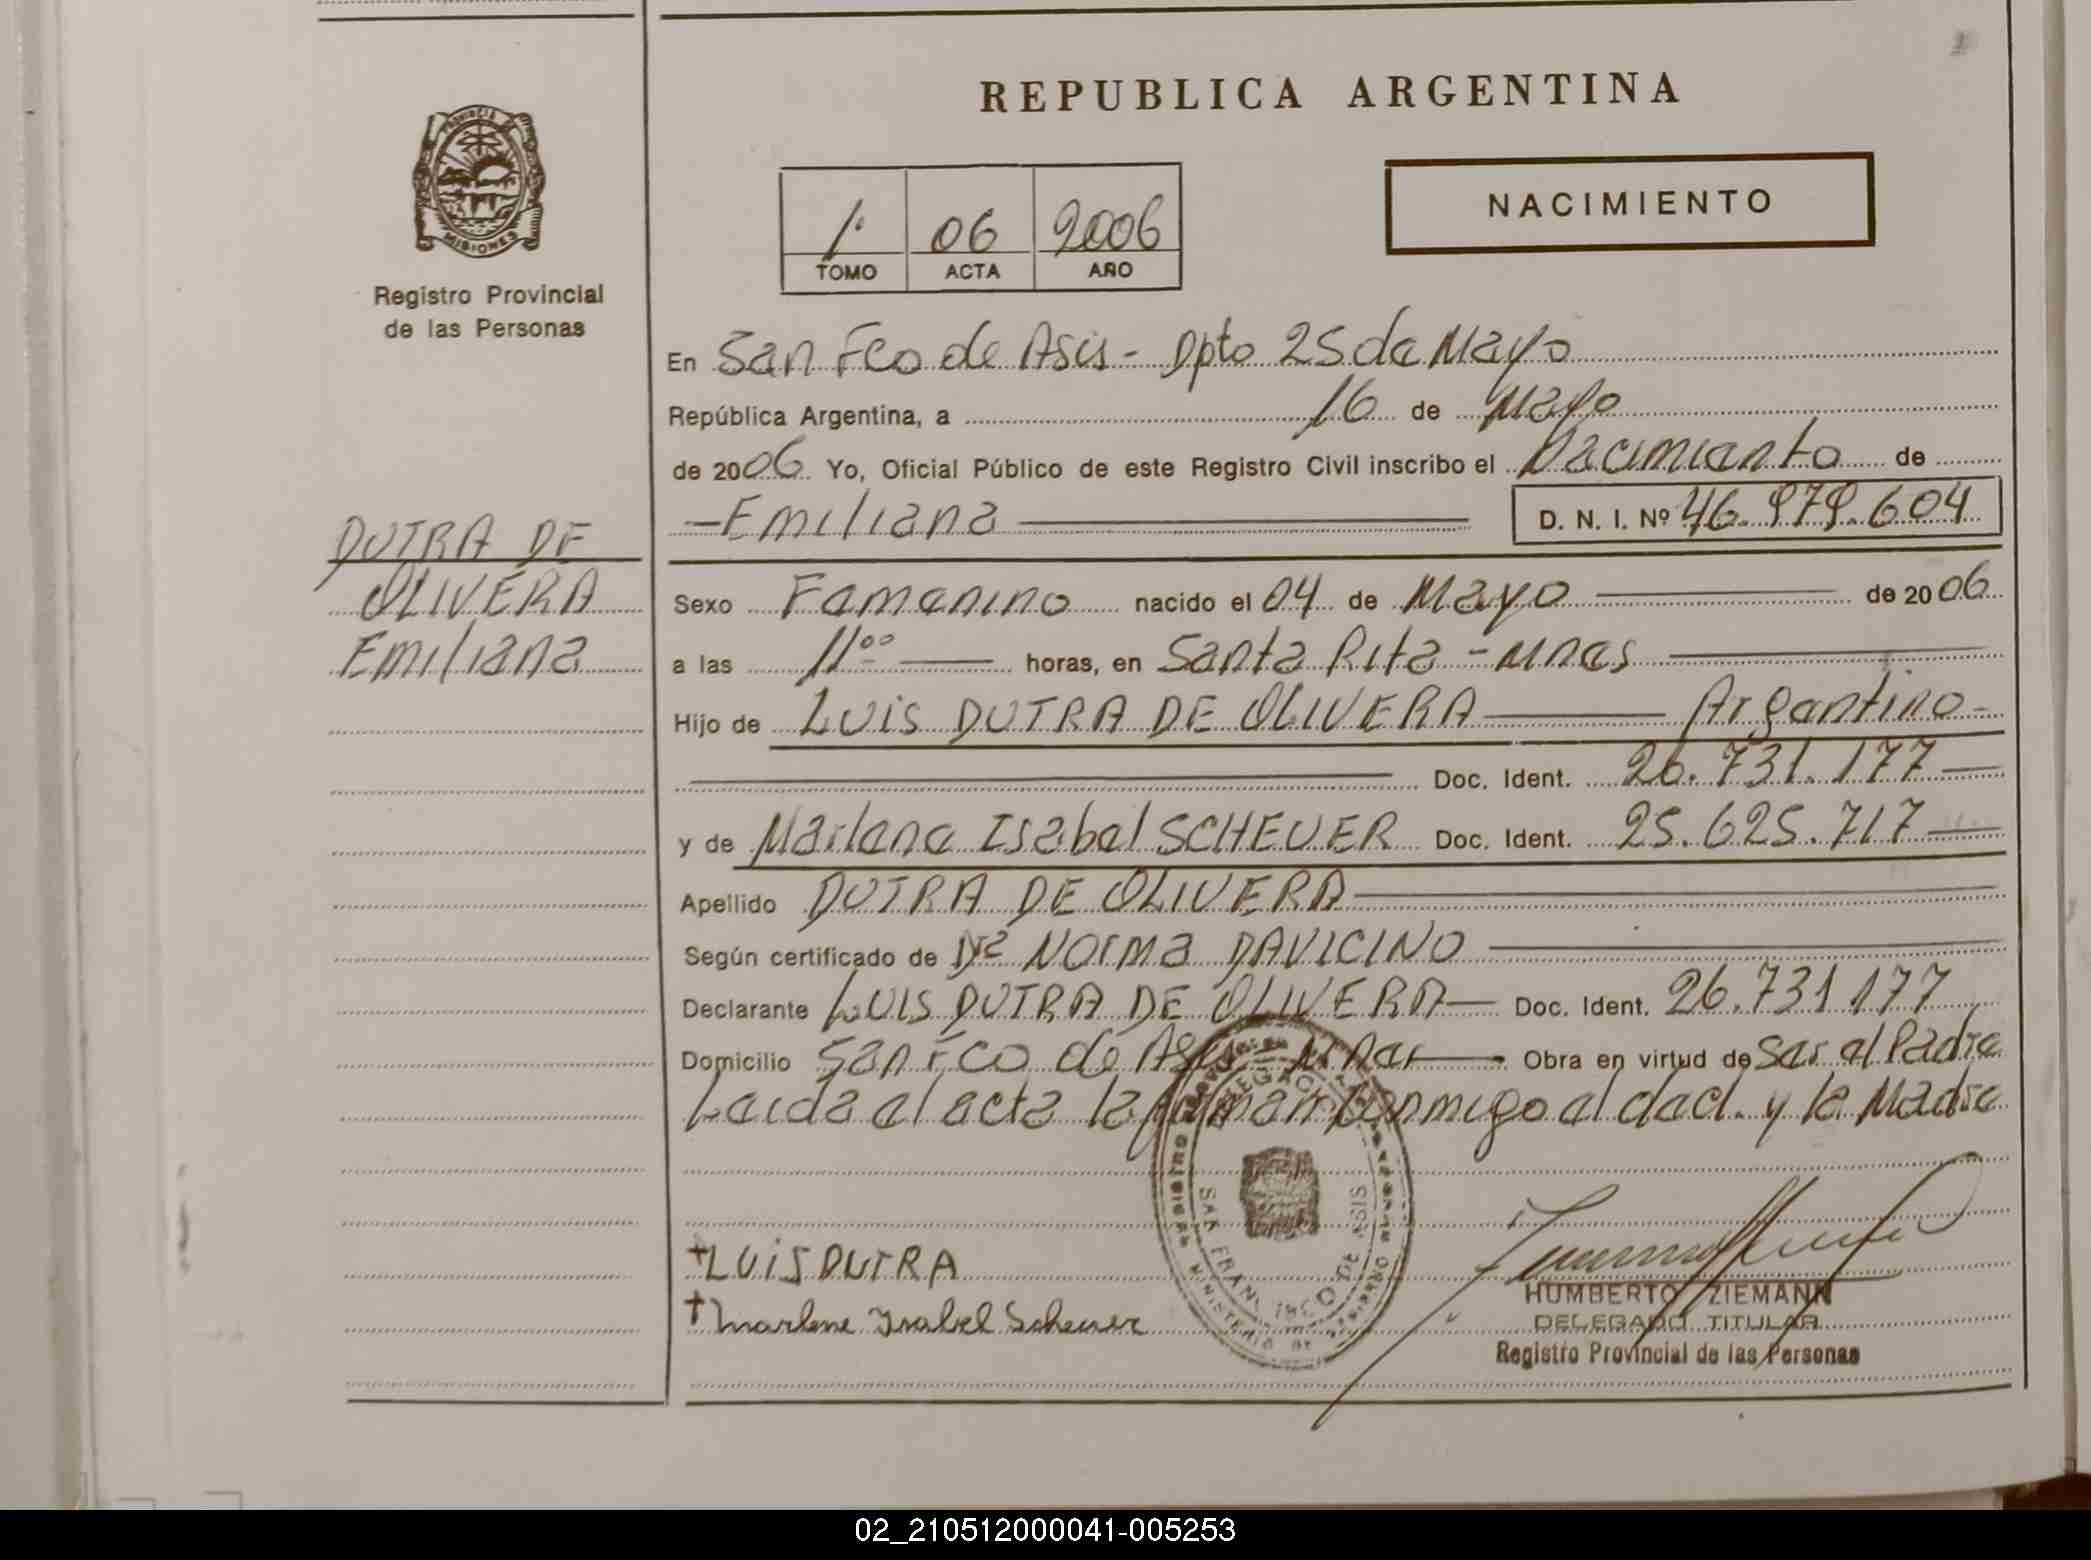 REPUBLICA ARGENTINA
PROVINCIA DE
MISIONES
Registro Provincial
de las Personas
1º 06 2006
TOMO ACTA AÑO
NACIMIENTO
En San Fco de Asis - Dpto 25 de Mayo
República Argentina, a 16 de Mayo
de 2006 Yo, Oficial Público de este Registro Civil inscribo el Nacimiento de
Emiliana D. N. I. Nº 46.979.604
DUTRA DE
OLIVERA
Emiliana
Sexo Femenino nacido el 04 de Mayo de 2006
a las 11ºº horas, en Santa Rita - Mnes
Hijo de LUIS DUTRA DE OLIVERA Argentino
Doc. Ident. 26.731.177
y de Marlene Isabel SCHEUER Doc. Ident. 25.625.717
Apellido DUTRA DE OLIVERA
Según certificado de Dra Norma DAVICINO
Declarante LUIS DUTRA DE OLIVERA Doc. Ident. 26.731.177
Domicilio San Fco de Asis Mnes Obra en virtud de Ser el Padre
Leida el acta la firman conmigo el decl. y la Madre
SAN FRANCISCO DE ASIS
+LUIS DUTRA
+Marlene Isabel Scheuer
HUMBERTO ZIEMANN
DELEGADO TITULAR
Registro Provincial de las Personas
02_210512000041-005253